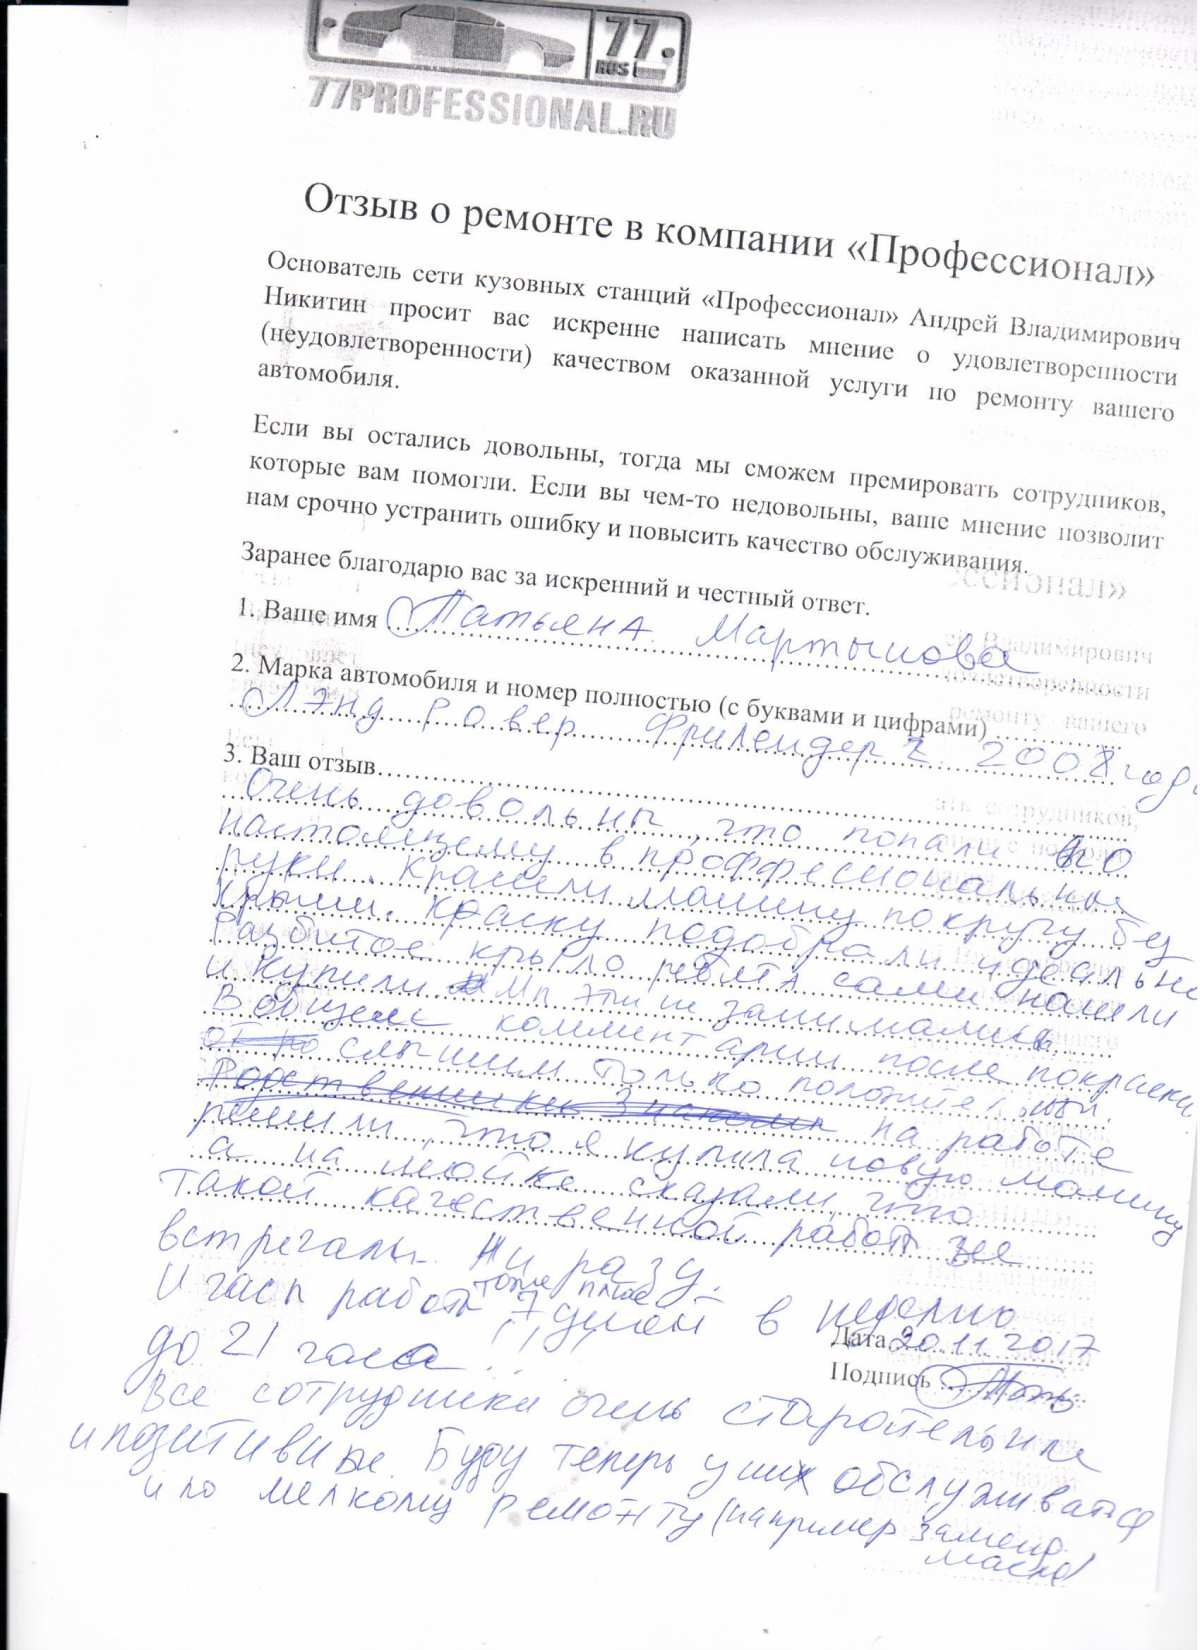 77
RUS
77PROFESSIONAL.RU
Отзыв о ремонте в компании «Профессионал»
Основатель сети кузовных станций «Профессионал» Андрей Владимирович
Никитин просит вас искренне написать мнение о удовлетворенности
(неудовлетворенности) качеством оказанной услуги по ремонту вашего
автомобиля.
Если вы остались довольны, тогда мы сможем премировать сотрудников,
которые вам помогли. Если вы чем-то недовольны, ваше мнение позволит
нам срочно устранить ошибку и повысить качество обслуживания.
Заранее благодарю вас за искренний и честный ответ.
1. Ваше имя Татьяна Мартынова
2. Марка автомобиля и номер полностью (с буквами и цифрами)
Лэнд ровер Фрилендер 2 2008 год
3. Ваш отзыв
Очень довольны, что попали по
настоящему в проффесиональные
руки. Красили машину по кругу без
крыши. Краску подобрали идеально
Разбитое крыло ребята сами нашли
и купили Мы эти не занимались
В общем комментарии после покраски
слышим только положительные
Родственники Знакомые на работе
решили, что я купила новую машину
а на мойке сказали, что
такой качественной работы не
встречали ни разу.
И часы работы тоже плюс 7 дней в неделю
до 21 часа!!!
Дата 20.11.2017
Подпись
Все сотрудники очень старательные
и позитивные. Буду теперь у них обслуживаться
и по мелкому ремонту (например замена
масла)